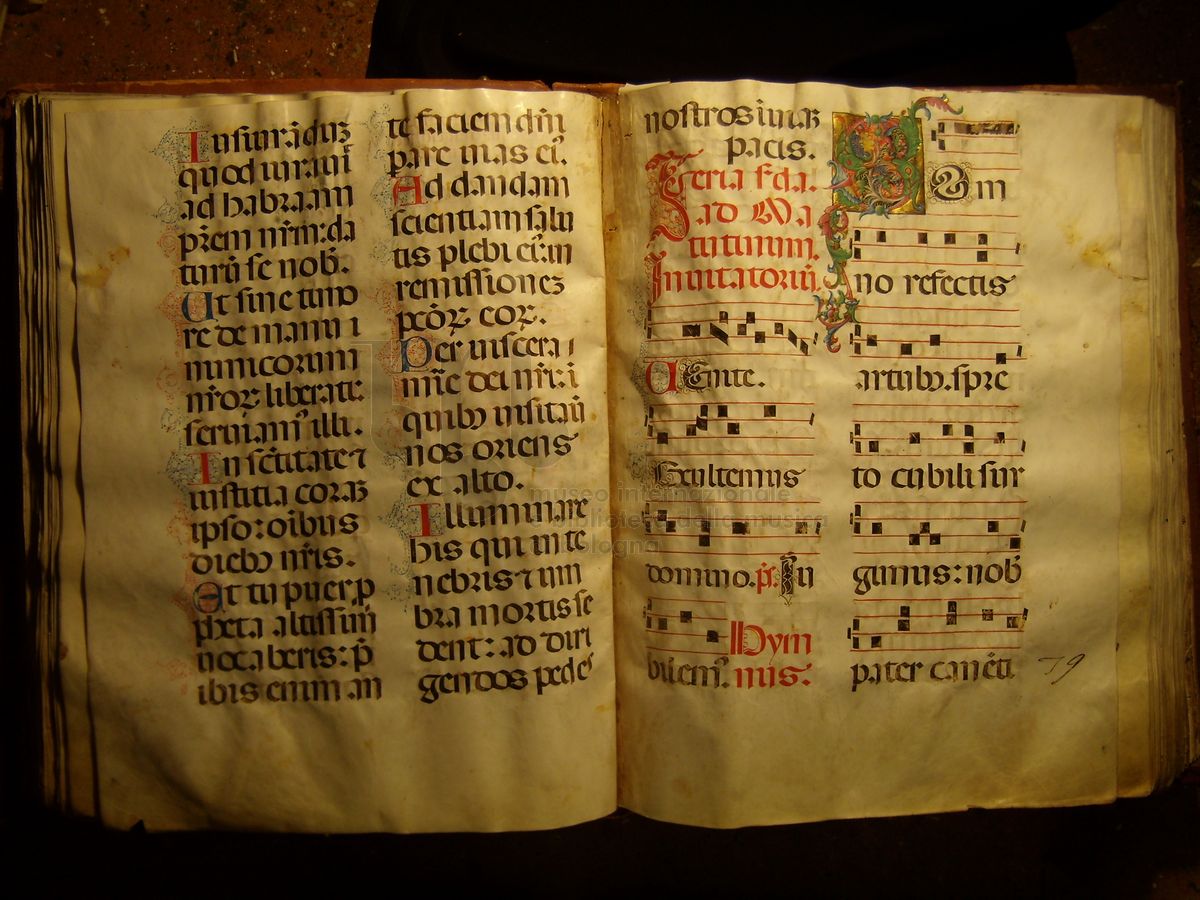 Jusiurãduz
quod iurauit
ad habraam
pr̃em nr̃m: da
turũ se nob̃.
Ut sine timo
re de manu i
nimicorum
nr̃oꝝ liberati:
seruiamꝰ illi.
In sc̃titate ⁊
iustitia coraz
ipso: oib̃us
diebꝫ nr̃is.
Et tu puer ꝓ
pheta altissimi
uocaberis: p̃
ibis enim an
te faciem dñi
pare uias eiꝰ.
Ad dandam
scientiam salu
tis plebi eiꝰ: in
remissionez
pc̃oꝝ eoꝝ.
Per uiscera i
mie dei nr̃i: i
quibꝫ uisitauit
nos oriens
ex alto.
Illuminare
his qui in te
nebris ⁊ in um
bra mortis se
dent: ad diri
gendos pedes
nostros in uiaz
pacis.
Feria scďa.
ad Ma
tutinum.
Inuitatoriũ.
Uenite.
Exultemus
domino. p̃s. Iu
bilemꝰ. Hym
nus.
Som
no refectis
artubꝫ. spre
to cubili sur
gimus: nob̃
pater canẽti
79
museo internazionale
e biblioteca della musica
bologna